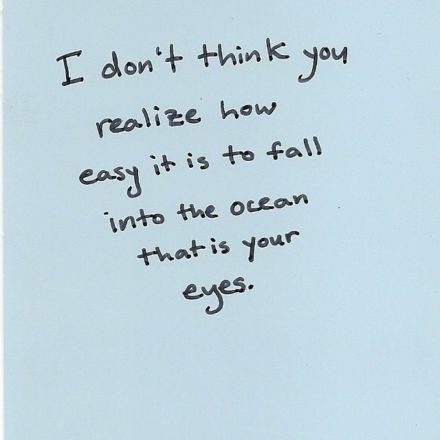 I don't think you
realize how
easy it is to fall
into the ocean
that is your
eyes.